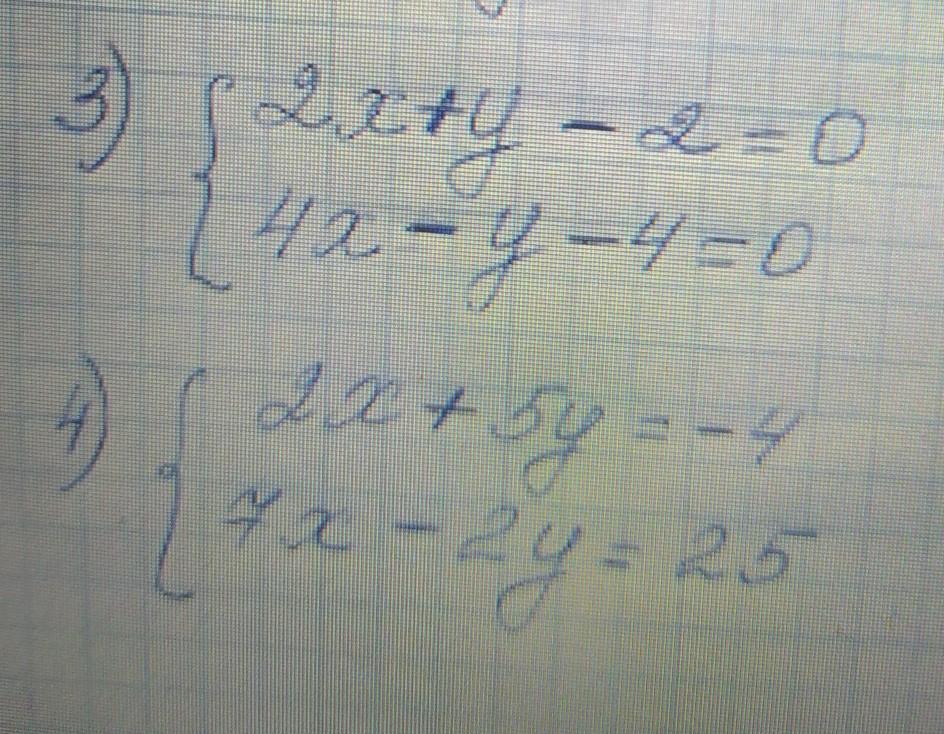 3) { 2x+y - 2 = 0
4x - y - 4 = 0
4) { 2x + 5y = -4
7x - 2y = 25